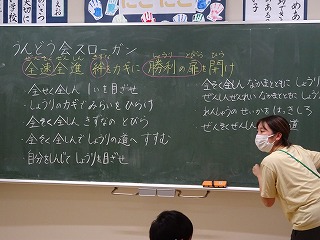 うんどう会スローガン
ぜんそくぜんしん きずな しょうり とびら ひら
全速全進 絆をカギに 勝利の扉を開け
・全せく全しん 1いを目ざせ
・しょうりのカギでみらいをひらけ
・全そく全しん きずなの とびら
・全そく全しんで しょうりの道へ すすむ
・自分をしんじて しょうりを目ざせ
全そく全しん なかまとともに しょうり
ぜんしんぜんれい なかまとともに
ぜんそくぜんしん
道